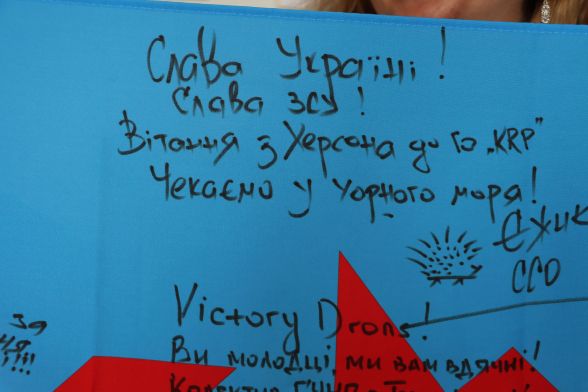 Слава Україні!
Слава ЗСУ!
Вітання з Херсона до ГО „KRP"
Чекаємо у Чорного моря!
Єжик
ССО
за
!!!!
Victory Drons!
Ви молодці, ми вам вдячні!
Колектив